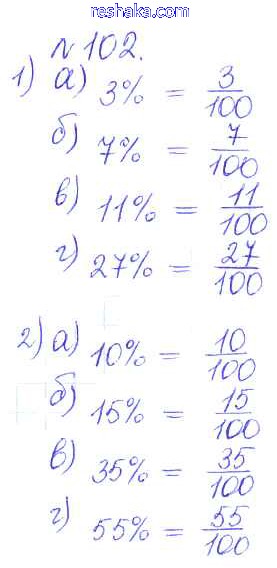 reshaka.com
№ 102.
1) а) 3% = 3/100
б) 7% = 7/100
в) 11% = 11/100
г) 27% = 27/100
2) а) 10% = 10/100
б) 15% = 15/100
в) 35% = 35/100
г) 55% = 55/100